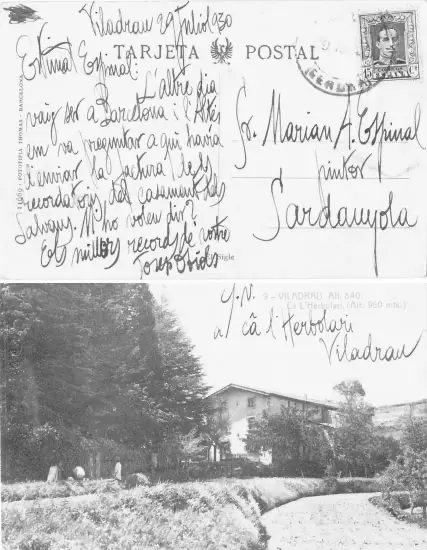 Viladrau 29 Juliol 930
TARJETA POSTAL
Estimat Espinal:
L'altre dia
vaig ser a Barcelona i l'Artés
em va preguntar a qui havia
d'enviar la factura dels
recordatoris del casament dels
Salvans. M'ho voleu dir?
Els millors records de vostre
Josep
Sr. Marian A. Espinal
pintor
Sardanyola
FOTOTIPIA THOMAS - BARCELONA
9 - VILADRAU Alt. 840.
Ca L'Herbolari. (Alt. 960 mts.)
a câ l'Herbolari
Viladrau